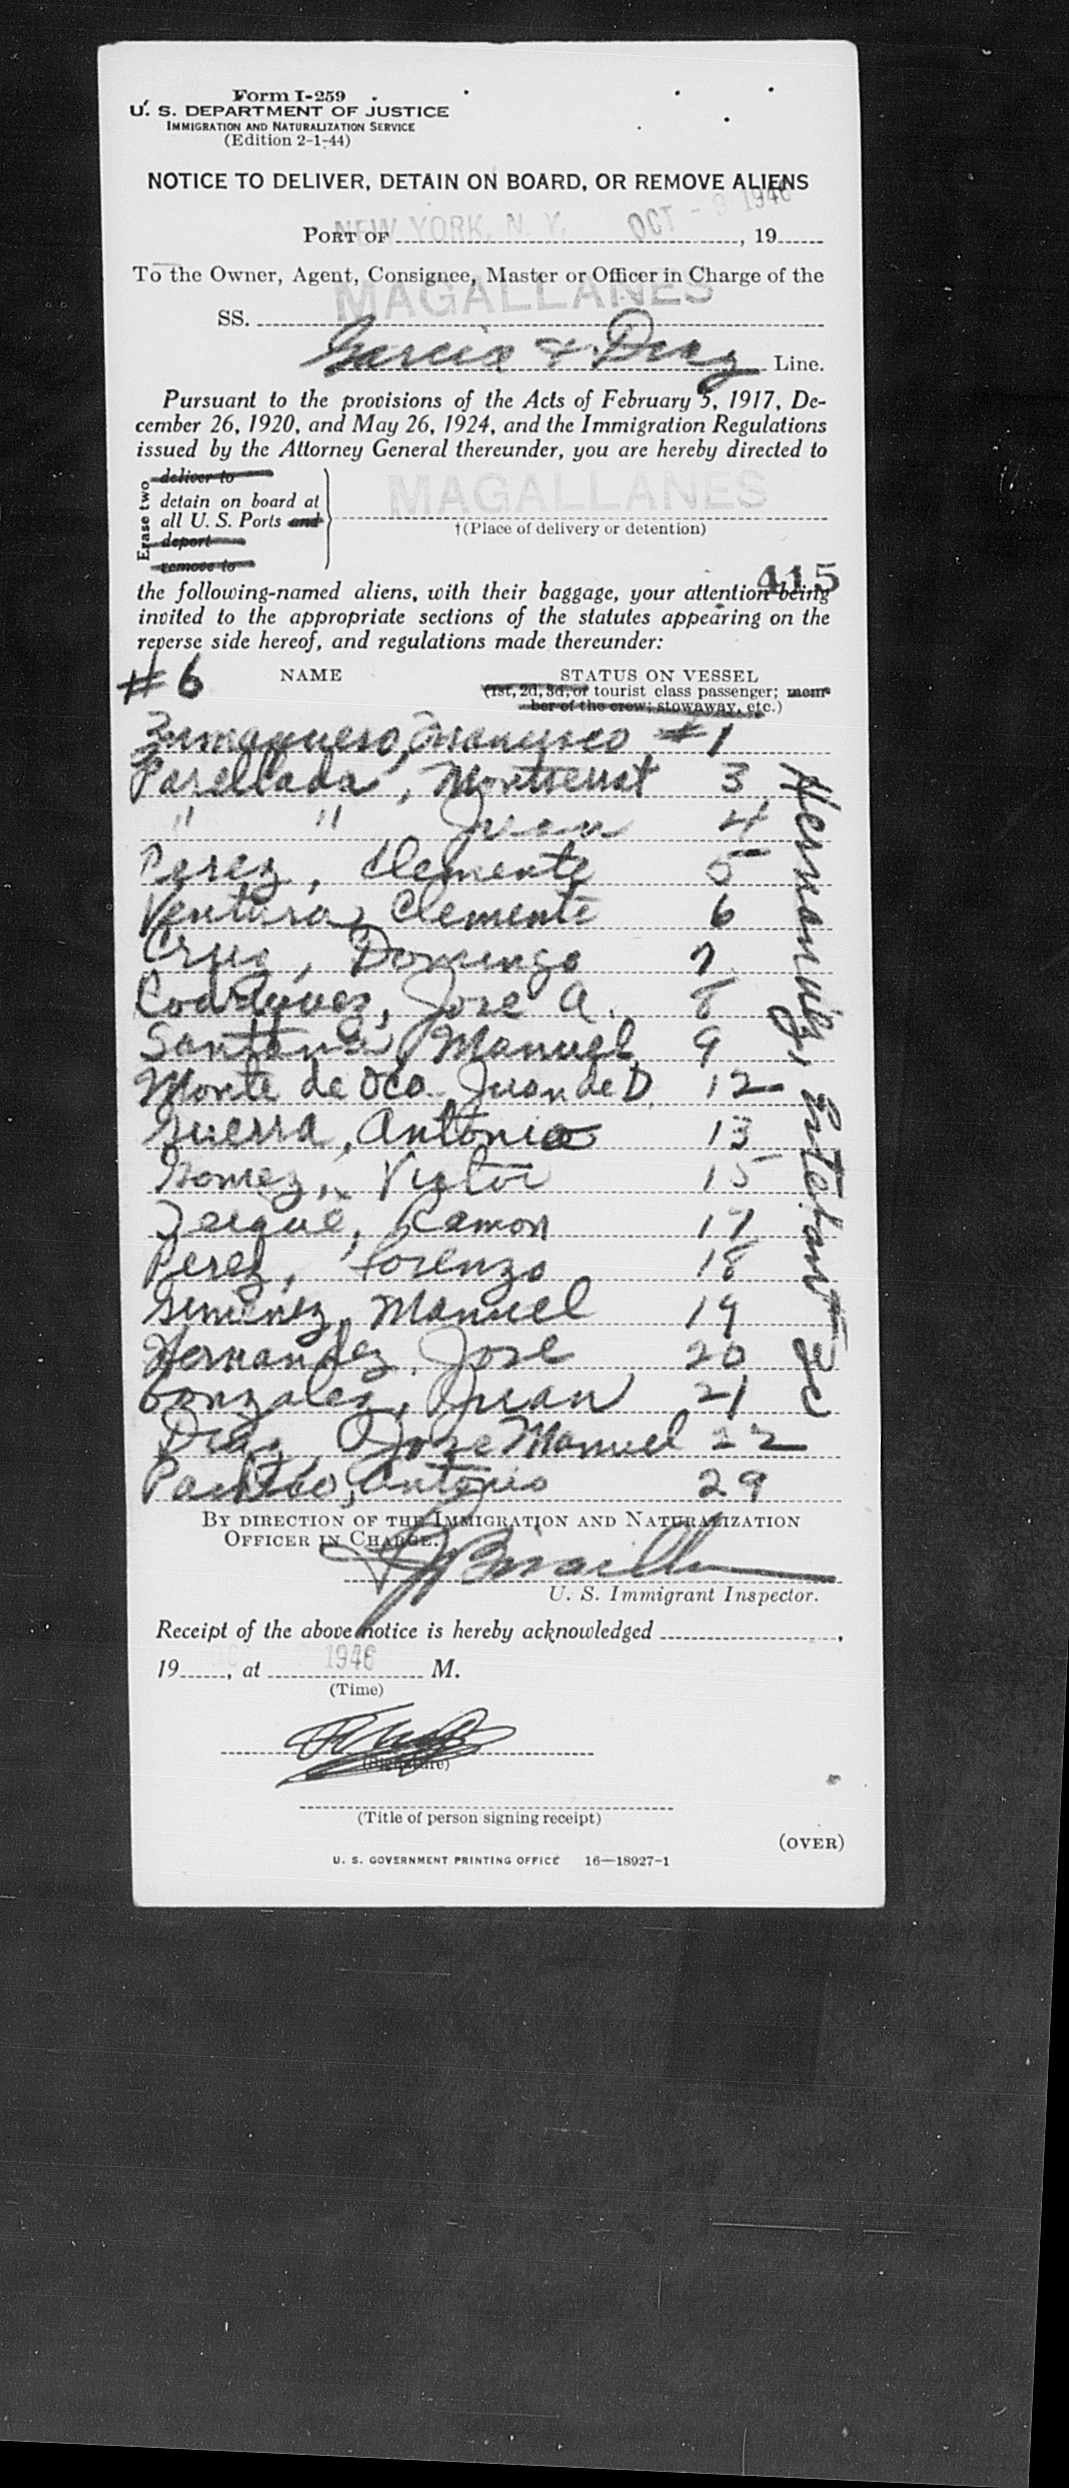 Form I-259
U. S. DEPARTMENT OF JUSTICE
IMMIGRATION AND NATURALIZATION SERVICE
(Edition 2-1-44)
NOTICE TO DELIVER, DETAIN ON BOARD, OR REMOVE ALIENS
PORT OF NEW YORK, N. Y. OCT - 9 1946, 19
To the Owner, Agent, Consignee, Master or Officer in Charge of the
SS. MAGALLANES
Garcia & Diaz Line.
Pursuant to the provisions of the Acts of February 5, 1917, De-
cember 26, 1920, and May 26, 1924, and the Immigration Regulations
issued by the Attorney General thereunder, you are hereby directed to
Erase two
deliver to
detain on board at
all U. S. Ports and
deport
remove to
MAGALLANES
†(Place of delivery or detention)
415
the following-named aliens, with their baggage, your attention being
invited to the appropriate sections of the statutes appearing on the
reverse side hereof, and regulations made thereunder:
#6 NAME STATUS ON VESSEL
(1st, 2d, 3d, or tourist class passenger; mem-
ber of the crew; stowaway, etc.)
Francisco #1
Parellada, Montserrat 3
" " Juan 4
Perez, Clemente 5
Ventura, Clemente 6
Cruz, Domingo 7
Rodriguez, Jose A. 8
Santana, Manuel 9
Monte de Oca Juan de D. 12
Guerra, Antonio 13
Gomez, Victor 15
Ramon 17
Perez, Lorenzo 18
Gimenez, Manuel 19
Hernandez, Jose 20
Gonzalez, Juan 21
Diaz, Jose Manuel 22
Antonio 29
Hernandez,
BY DIRECTION OF THE IMMIGRATION AND NATURALIZATION
OFFICER IN CHARGE.
U. S. Immigrant Inspector.
Receipt of the above notice is hereby acknowledged ,
19 , at 1946 M.
(Time)
(Signature)
(Title of person signing receipt)
(OVER)
U. S. GOVERNMENT PRINTING OFFICE 16—18927-1